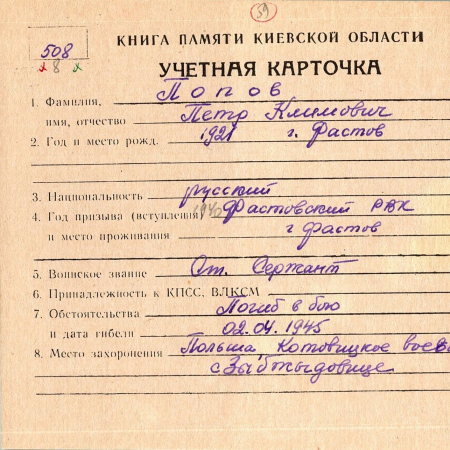 39
508
х 8 х
КНИГА ПАМЯТИ КИЕВСКОЙ ОБЛАСТИ
УЧЕТНАЯ КАРТОЧКА
1. Фамилия, Попов
имя, отчество Петр Климович
2. Год и место рожд. 1921 г. Фастов
3. Национальность русский
4. Год призыва (вступления) 1940 Фастовский РВК
и место проживания г Фастов
5. Воинское звание Ст. Сержант
6. Принадлежность к КПСС, ВЛКСМ
7. Обстоятельства Погиб в бою
и дата гибели 02.04.1945
8. Место захоронения Польша, Котовицкое воев
с